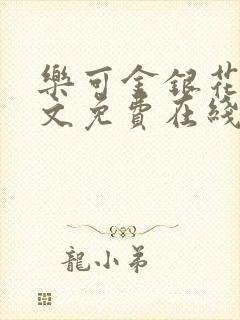 樂可金銀花
文免費在綫
龍小弟